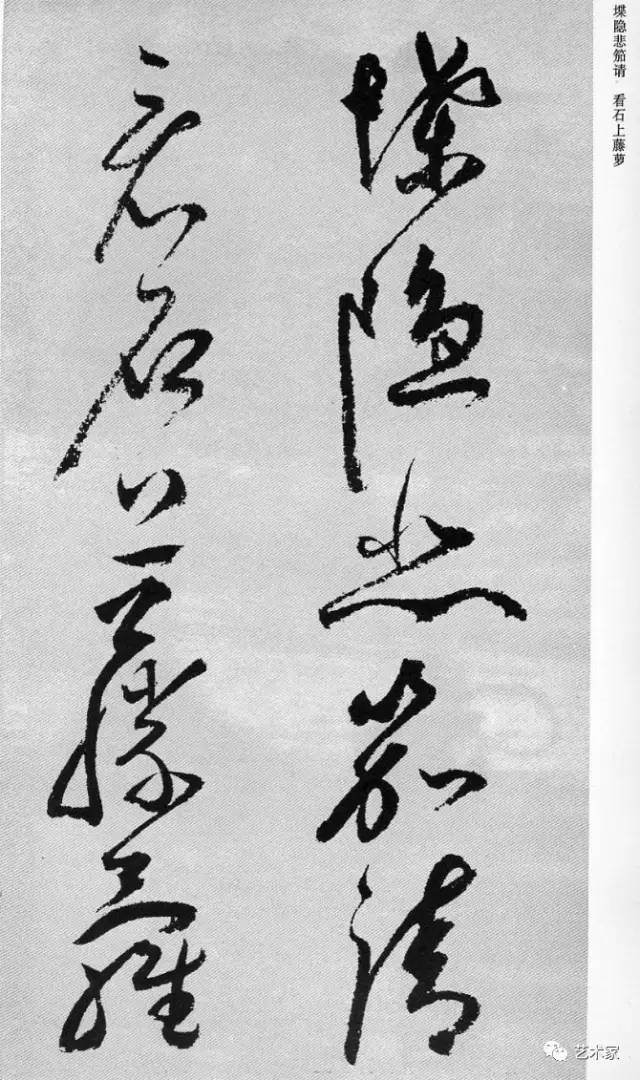 堞隐悲笳请
看石上藤蘿
堞隐悲笳请 看石上藤萝
艺术家